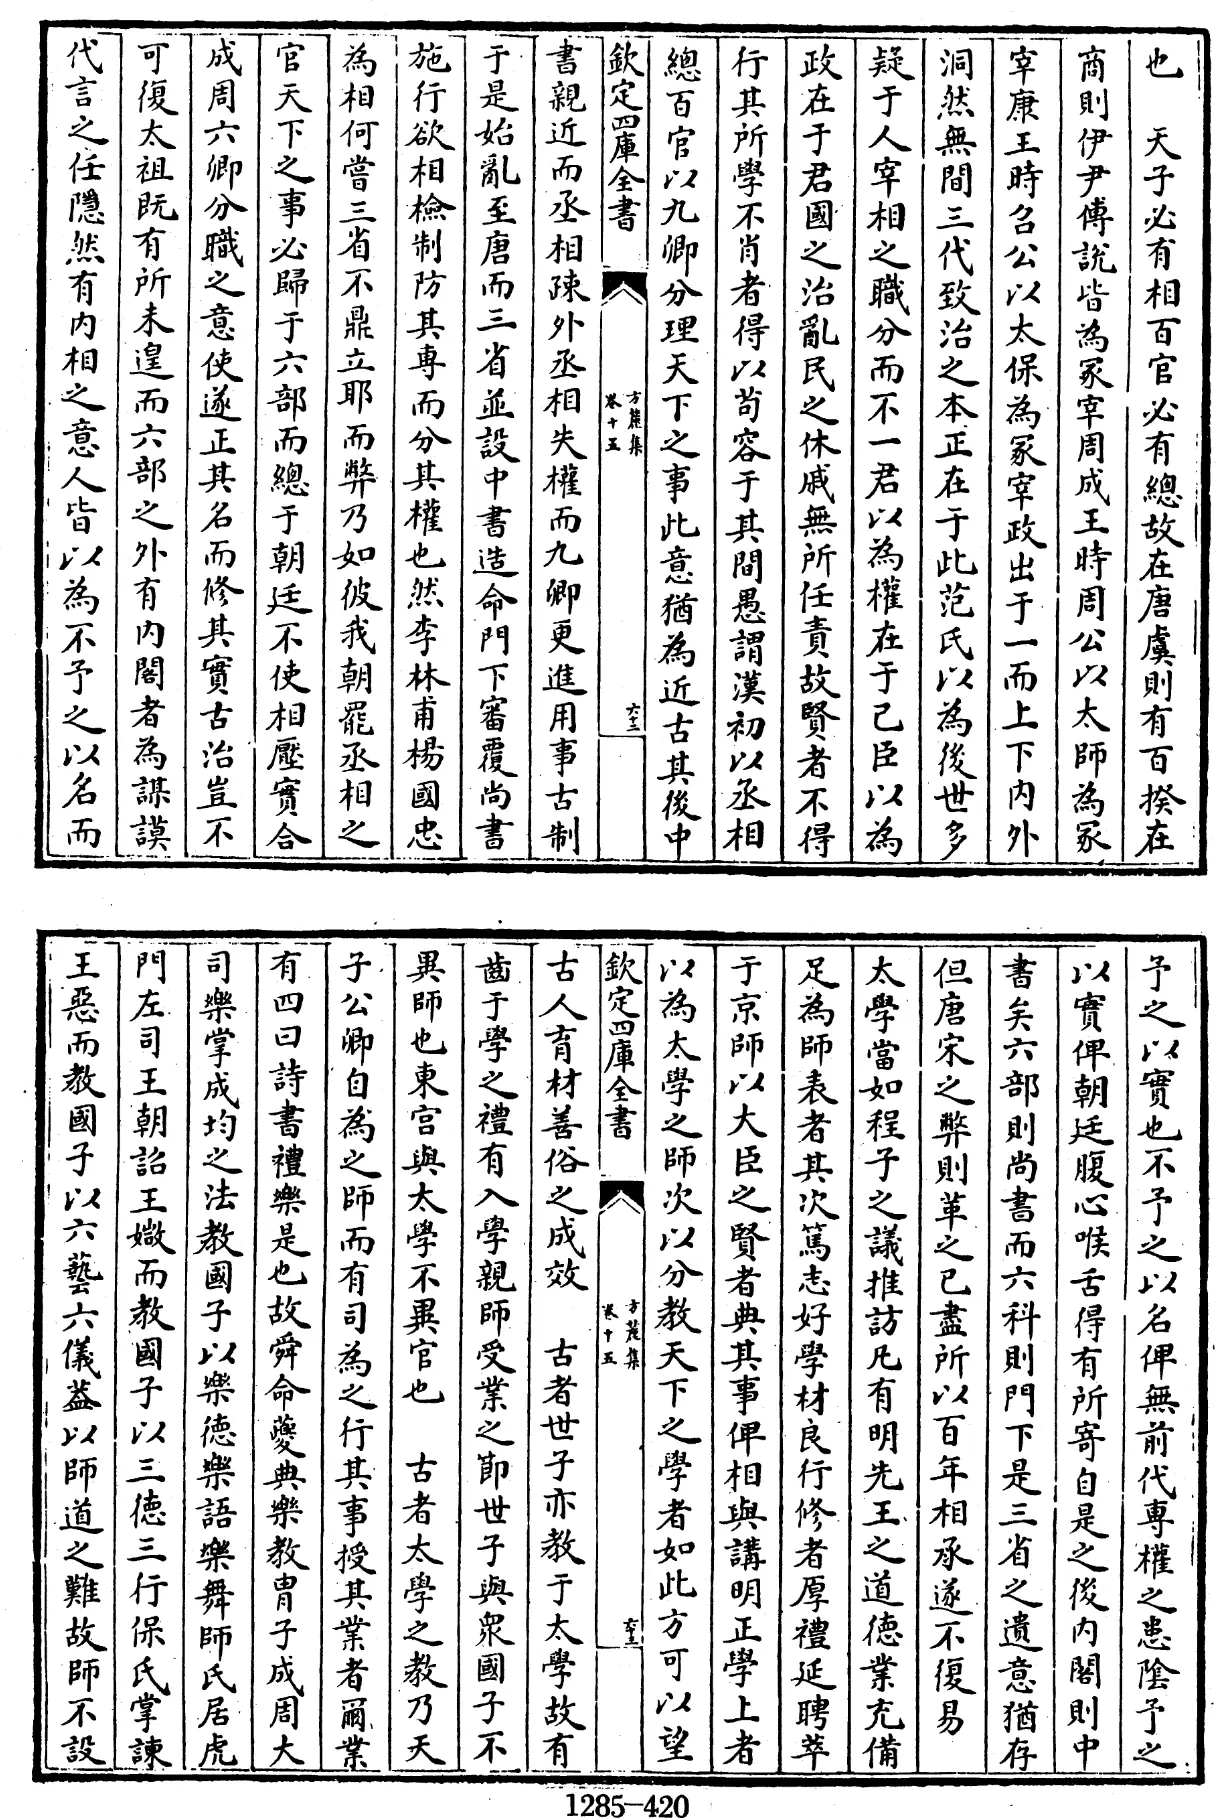 也　天子必有相百官必有總故在唐虞則有百揆在
商則伊尹傅說皆為冢宰周成王時周公以太師為冢
宰康王時召公以太保為冢宰政出于一而上下内外
洞然無間三代致治之本正在于此范氏以為後世多
疑于人宰相之職分而不一君以為權在于己臣以為
政在于君國之治亂民之休戚無所任責故賢者不得
行其所學不肖者得以苟容于其間愚謂漢初以丞相
總百官以九卿分理天下之事此意猶為近古其後中
欽定四庫全書
方麓集
卷十五
六十二
書親近而丞相疎外丞相失權而九卿更進用事古制
于是始亂至唐而三省並設中書造命門下審覆尚書
施行欲相檢制防其專而分其權也然李林甫楊國忠
為相何嘗三省不鼎立耶而弊乃如彼我朝罷丞相之
官天下之事必歸于六部而總于朝廷不使相壓實合
成周六卿分職之意使遂正其名而修其實古治豈不
可復太祖既有所未遑而六部之外有内閣者為謀謨
代言之任隱然有内相之意人皆以為不予之以名而
予之以實也不予之以名俾無前代專權之患陰予之
以實俾朝廷腹心喉舌得有所寄自是之後内閣則中
書矣六部則尚書而六科則門下是三省之遺意猶存
但唐宋之弊則革之已盡所以百年相承遂不復易
太學當如程子之議推訪凡有明先王之道德業充備
足為師表者其次篤志好學材良行修者厚禮延聘萃
于京師以大臣之賢者典其事俾相與講明正學上者
以為太學之師次以分教天下之學者如此方可以望
欽定四庫全書
方麓集
卷十五
六十三
古人育材善俗之成效　古者世子亦教于太學故有
齒于學之禮有入學親師受業之節世子與衆國子不
異師也東宫與太學不異官也　古者太學之教乃天
子公卿自為之師而有司為之行其事授其業者爾業
有四曰詩書禮樂是也故舜命夔典樂教胄子成周大
司樂掌成均之法教國子以樂德樂語樂舞師氏居虎
門左司王朝詔王媺而教國子以三德三行保氏掌諫
王惡而教國子以六藝六儀葢以師道之難故師不設
1285-420